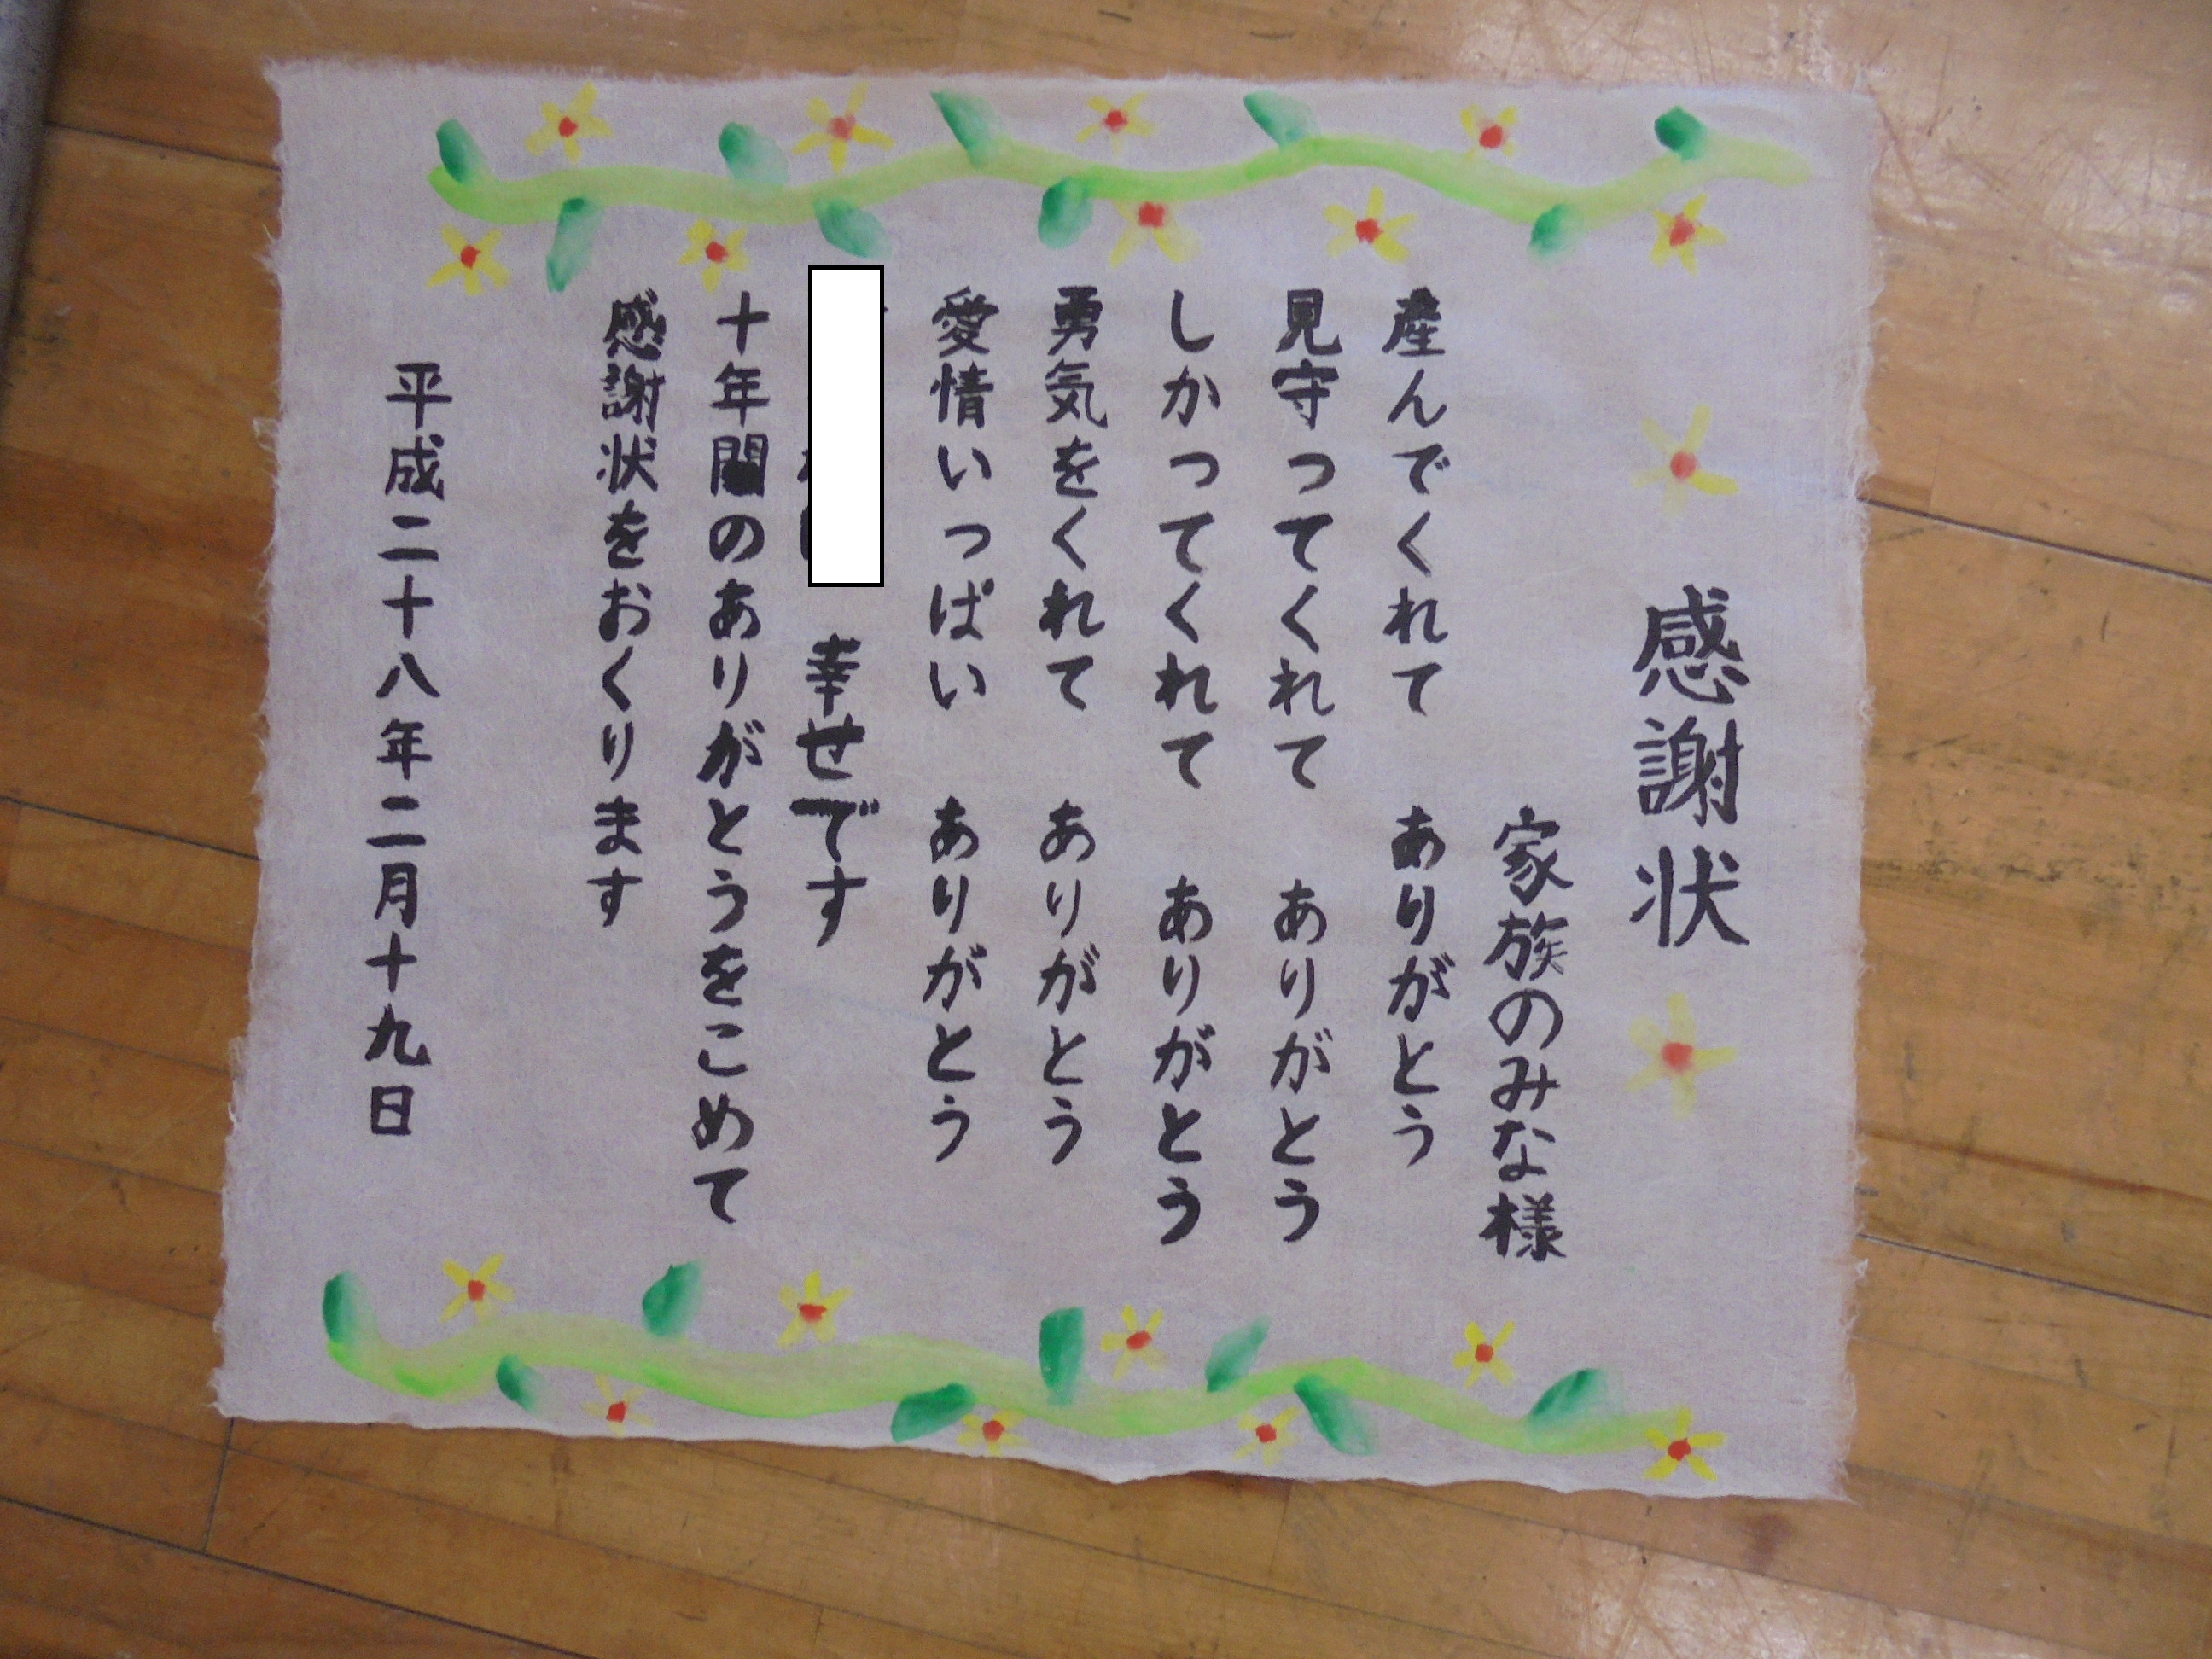 感謝状
家族のみな様
産んでくれて ありがとう
見守ってくれて ありがとう
しかってくれて ありがとう
勇気をくれて ありがとう
愛情いっぱい ありがとう
幸せです
十年間のありがとうをこめて
感謝状をおくります
平成二十八年二月十九日